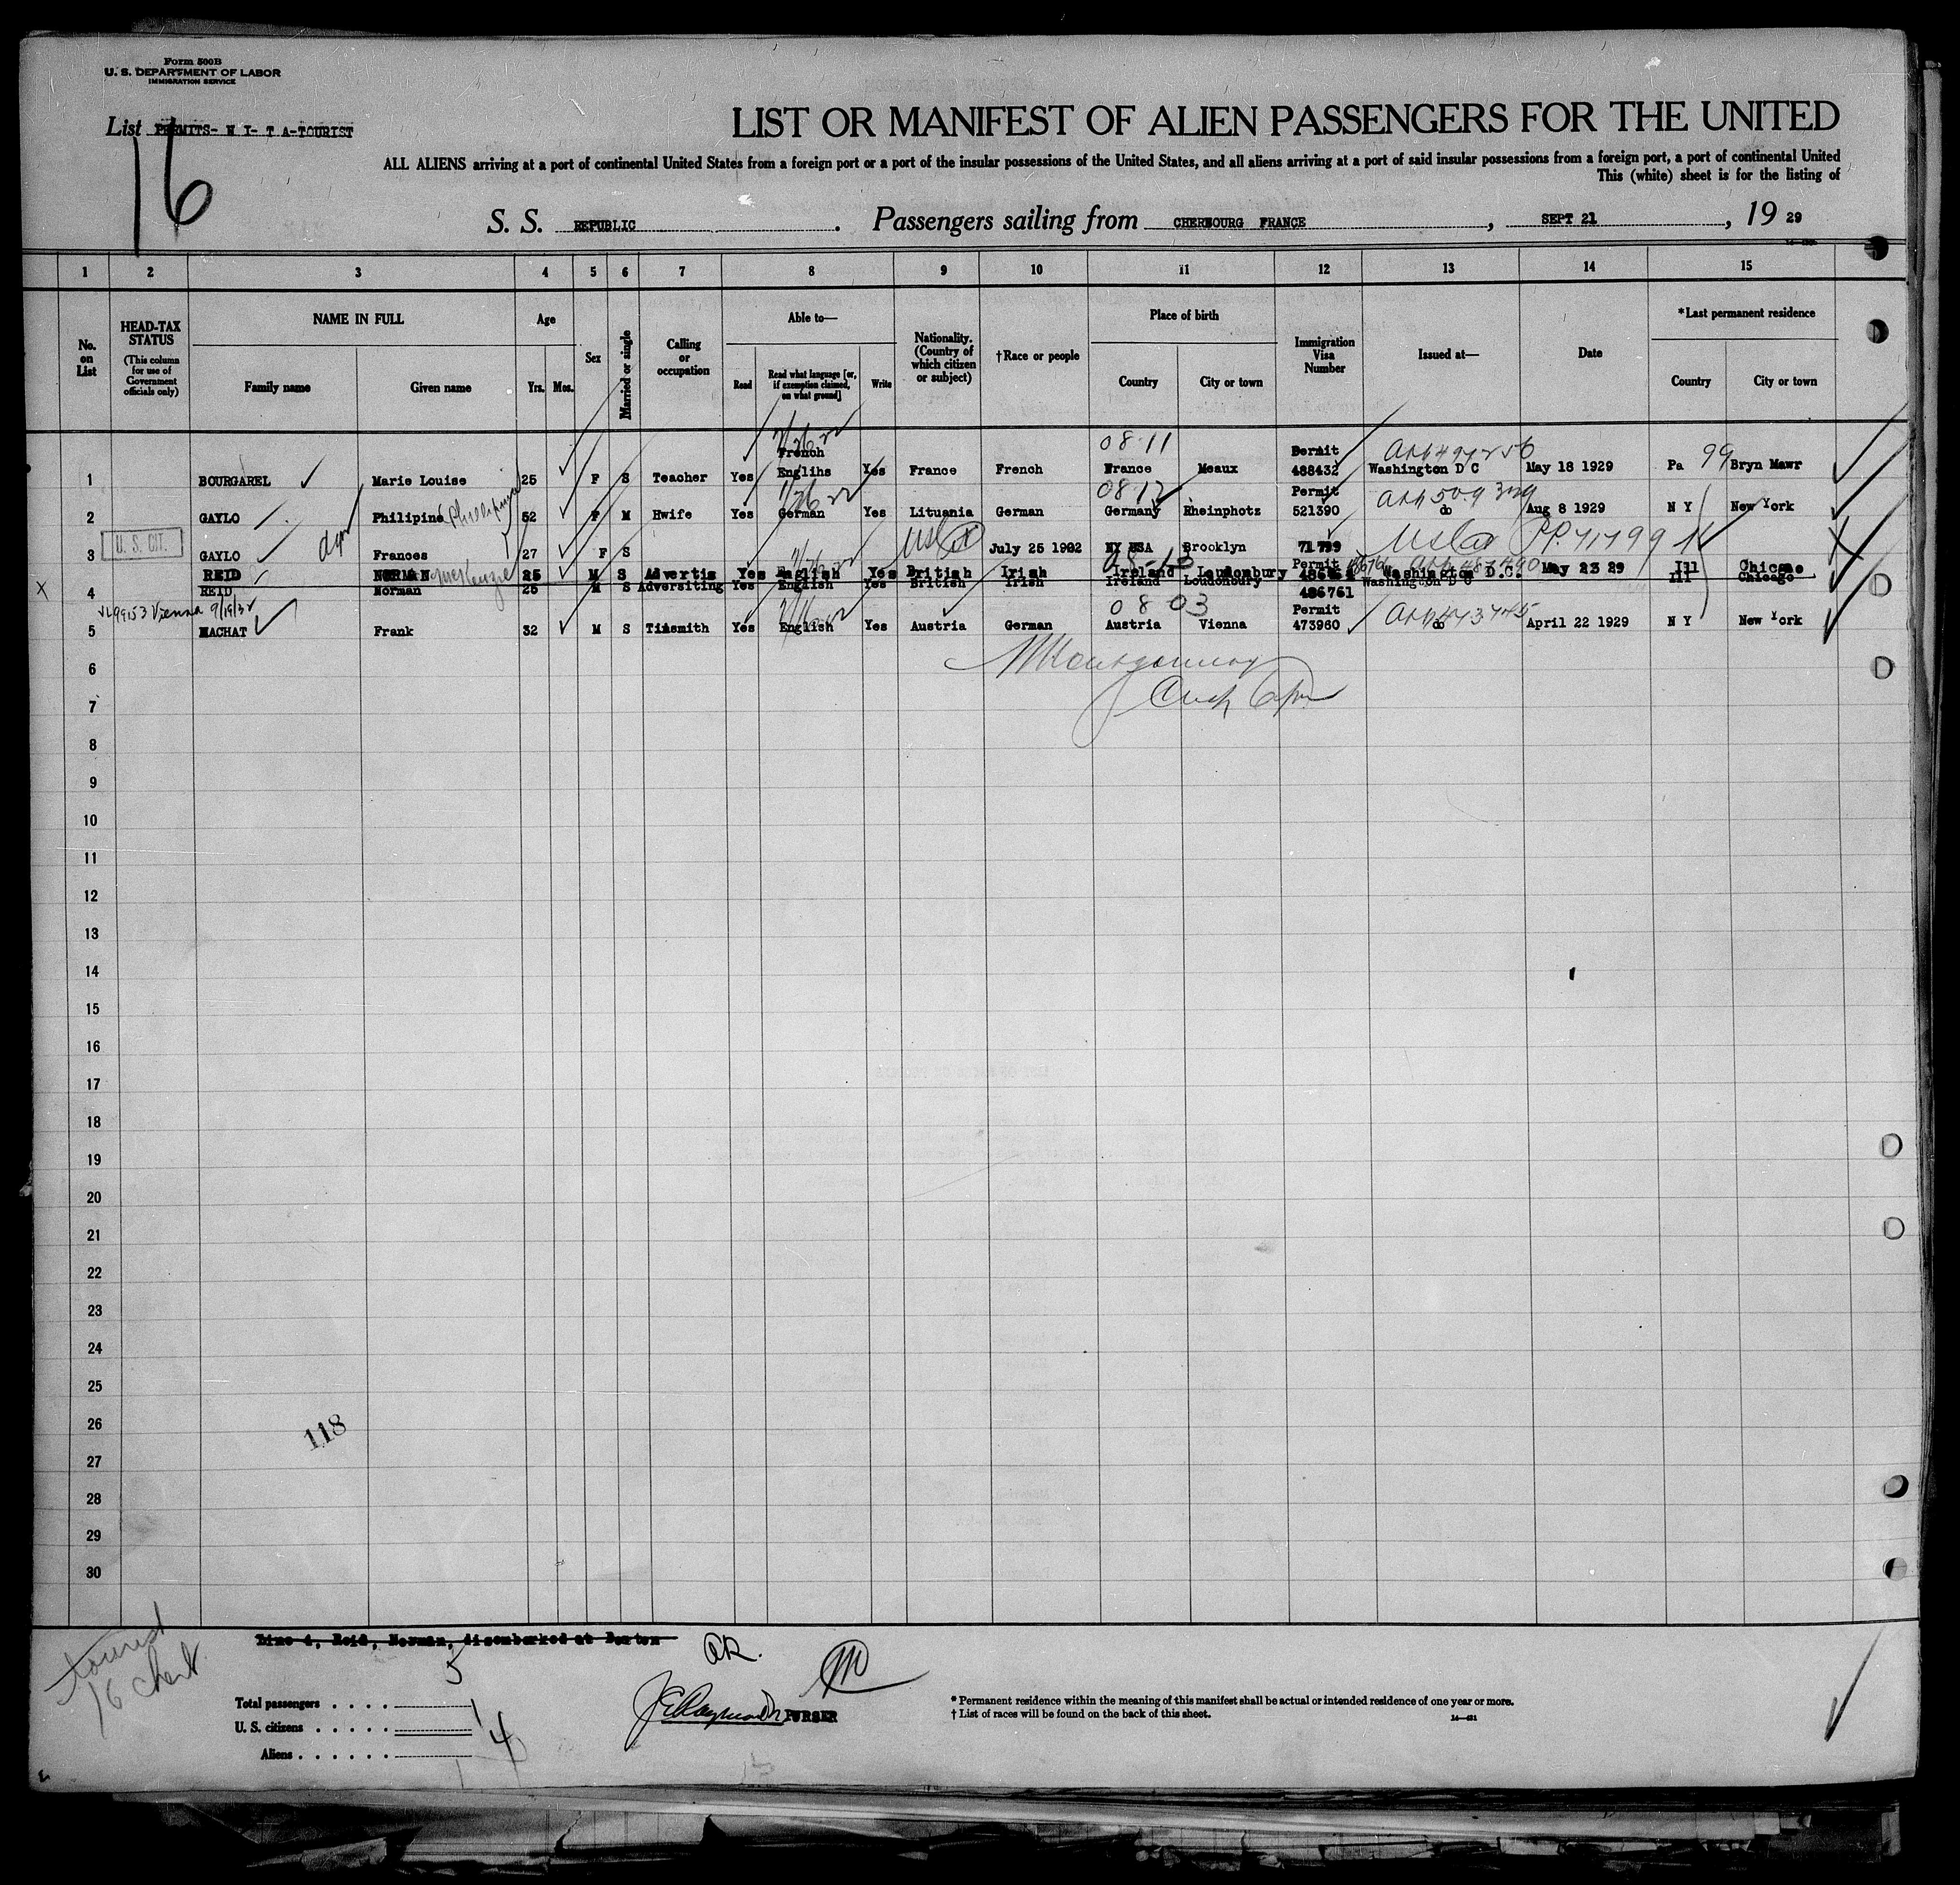 Form 500B
U. S. DEPARTMENT OF LABOR
IMMIGRATION SERVICE
List PERMITS- N I- T A-TOURIST
16
LIST OR MANIFEST OF ALIEN PASSENGERS FOR THE UNITED
ALL ALIENS arriving at a port of continental United States from a foreign port or a port of the insular possessions of the United States, and all aliens arriving at a port of said insular possessions from a foreign port, a port of continental United
This (white) sheet is for the listing of
S. S. REPUBLIC. Passengers sailing from CHERBOURG FRANCE, SEPT 21, 19 29
1 2 3 4 5 6 7 8 9 10 11 12 13 14 15
No. on List
HEAD-TAX STATUS (This column for use of Government officials only)
NAME IN FULL
Family name Given name
Age
Yrs. Mos.
Sex
Married or single
Calling or occupation
Able to—
Read Read what language [or, if exemption claimed, on what ground] Write
Nationality. (Country of which citizen or subject)
†Race or people
Place of birth
Country City or town
Immigration Visa Number
Issued at—
Date
*Last permanent residence
Country City or town
08-11
French Permit 99
1 BOURGAREL Marie Louise 25 F S Teacher Yes Englihs Yes France French France Meaux 488432 Washington D C May 18 1929 Pa Bryn Mawr
08-12 Permit
2 GAYLO Philipine Phillipina 52 F M Hwife Yes German Yes Lituania German Germany Rheinphotz 521390 do Aug 8 1929 N Y New York
U. S. CIT.
3 GAYLO Frances 27 F S July 25 1902 NY USA Brooklyn 71799 PP. 71799
Permit
REID NORMAN McKenzie 25 M S Advertis Yes English Yes British Irish Ireland Loudonbury Washington D.C. May 23 29 Ill Chicago
4 REID Norman 25 M S Adversiting Yes English Yes British Irish Ireland Loudonbury 486761 Washington D C Ill Chicago
Vienna 9/19/32 08 03 Permit
5 MACHAT Frank 32 M S Tinsmith Yes English Yes Austria German Austria Vienna 473960 do April 22 1929 N Y New York
6
7
8
9
10
11
12
13
14
15
16
17
18
19
20
21
22
23
24
25
26
118
27
28
29
30
tourist
16
Line 4, Reid, Norman, disembarked at Boston
OK.
5
Total passengers
U. S. citizens 1
Aliens 4
PURSER
* Permanent residence within the meaning of this manifest shall be actual or intended residence of one year or more.
† List of races will be found on the back of this sheet.